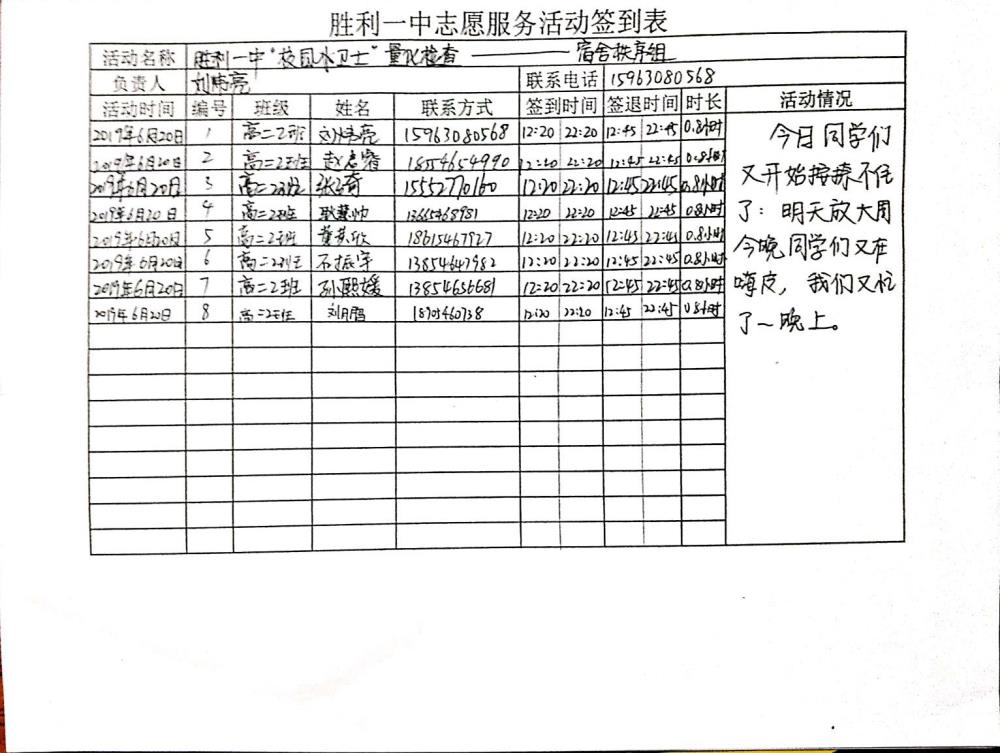 胜利一中志愿服务活动签到表
活动名称 胜利一中"校园小卫士"量化检查——宿舍秩序组
负责人 刘炜亮 联系电话 15963080568
活动时间 编号 班级 姓名 联系方式 签到时间 签退时间 时长 活动情况
2019年6月20日 1 高二2班 刘炜亮 15963080568 12:20 22:20 12:45 22:45 0.8小时
2019年6月20日 2 高二2班 18554654990 12:20 22:20 12:45 22:45 0.8小时
2019年6月20日 3 高二2班 15552770160 12:20 22:20 12:45 22:45 0.8小时
2019年6月20日 4 高二2班 耿慧帅 13665468981 12:20 22:20 12:45 22:45 0.8小时
2019年6月20日 5 高二2班 18615467927 12:20 22:20 12:45 22:45 0.8小时
2019年6月20日 6 高二2班 13854647982 12:20 22:20 12:45 22:45 0.8小时
2019年6月20日 7 高二2班 孙熙媛 13854656681 12:20 22:20 12:45 22:45 0.8小时
2019年6月20日 8 高二2班 刘月鹏 12:20 22:20 12:45 22:45 0.8小时
今日同学们
又开始按捺不住
了：明天放大周
今晚同学们又在
嗨皮，我们又忙
了一晚上。